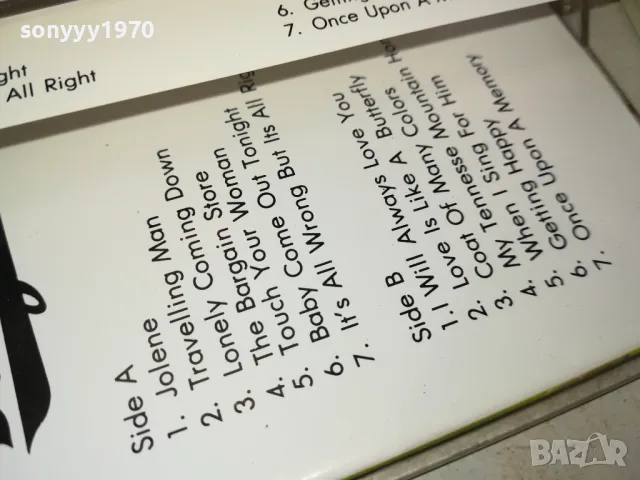 sonyyy1970
6. Getting
7. Once Upon A
ght
All Right
Side A
1. Jolene
2. Travelling Man
3. Lonely Coming Down
4. The Bargain Store
5. Touch Your Woman
6. Baby Come Out Tonight
7. It's All Wrong But Its All Rig
Side B
1. I Will Always Love You
2. Love Is Like A Butterfly
3. Coat Of Many Colors
4. My Tennesse Mountain Hom
5. When I Sing For Him
6. Getting Happy
7. Once Upon A Memory
BAZAR
bg